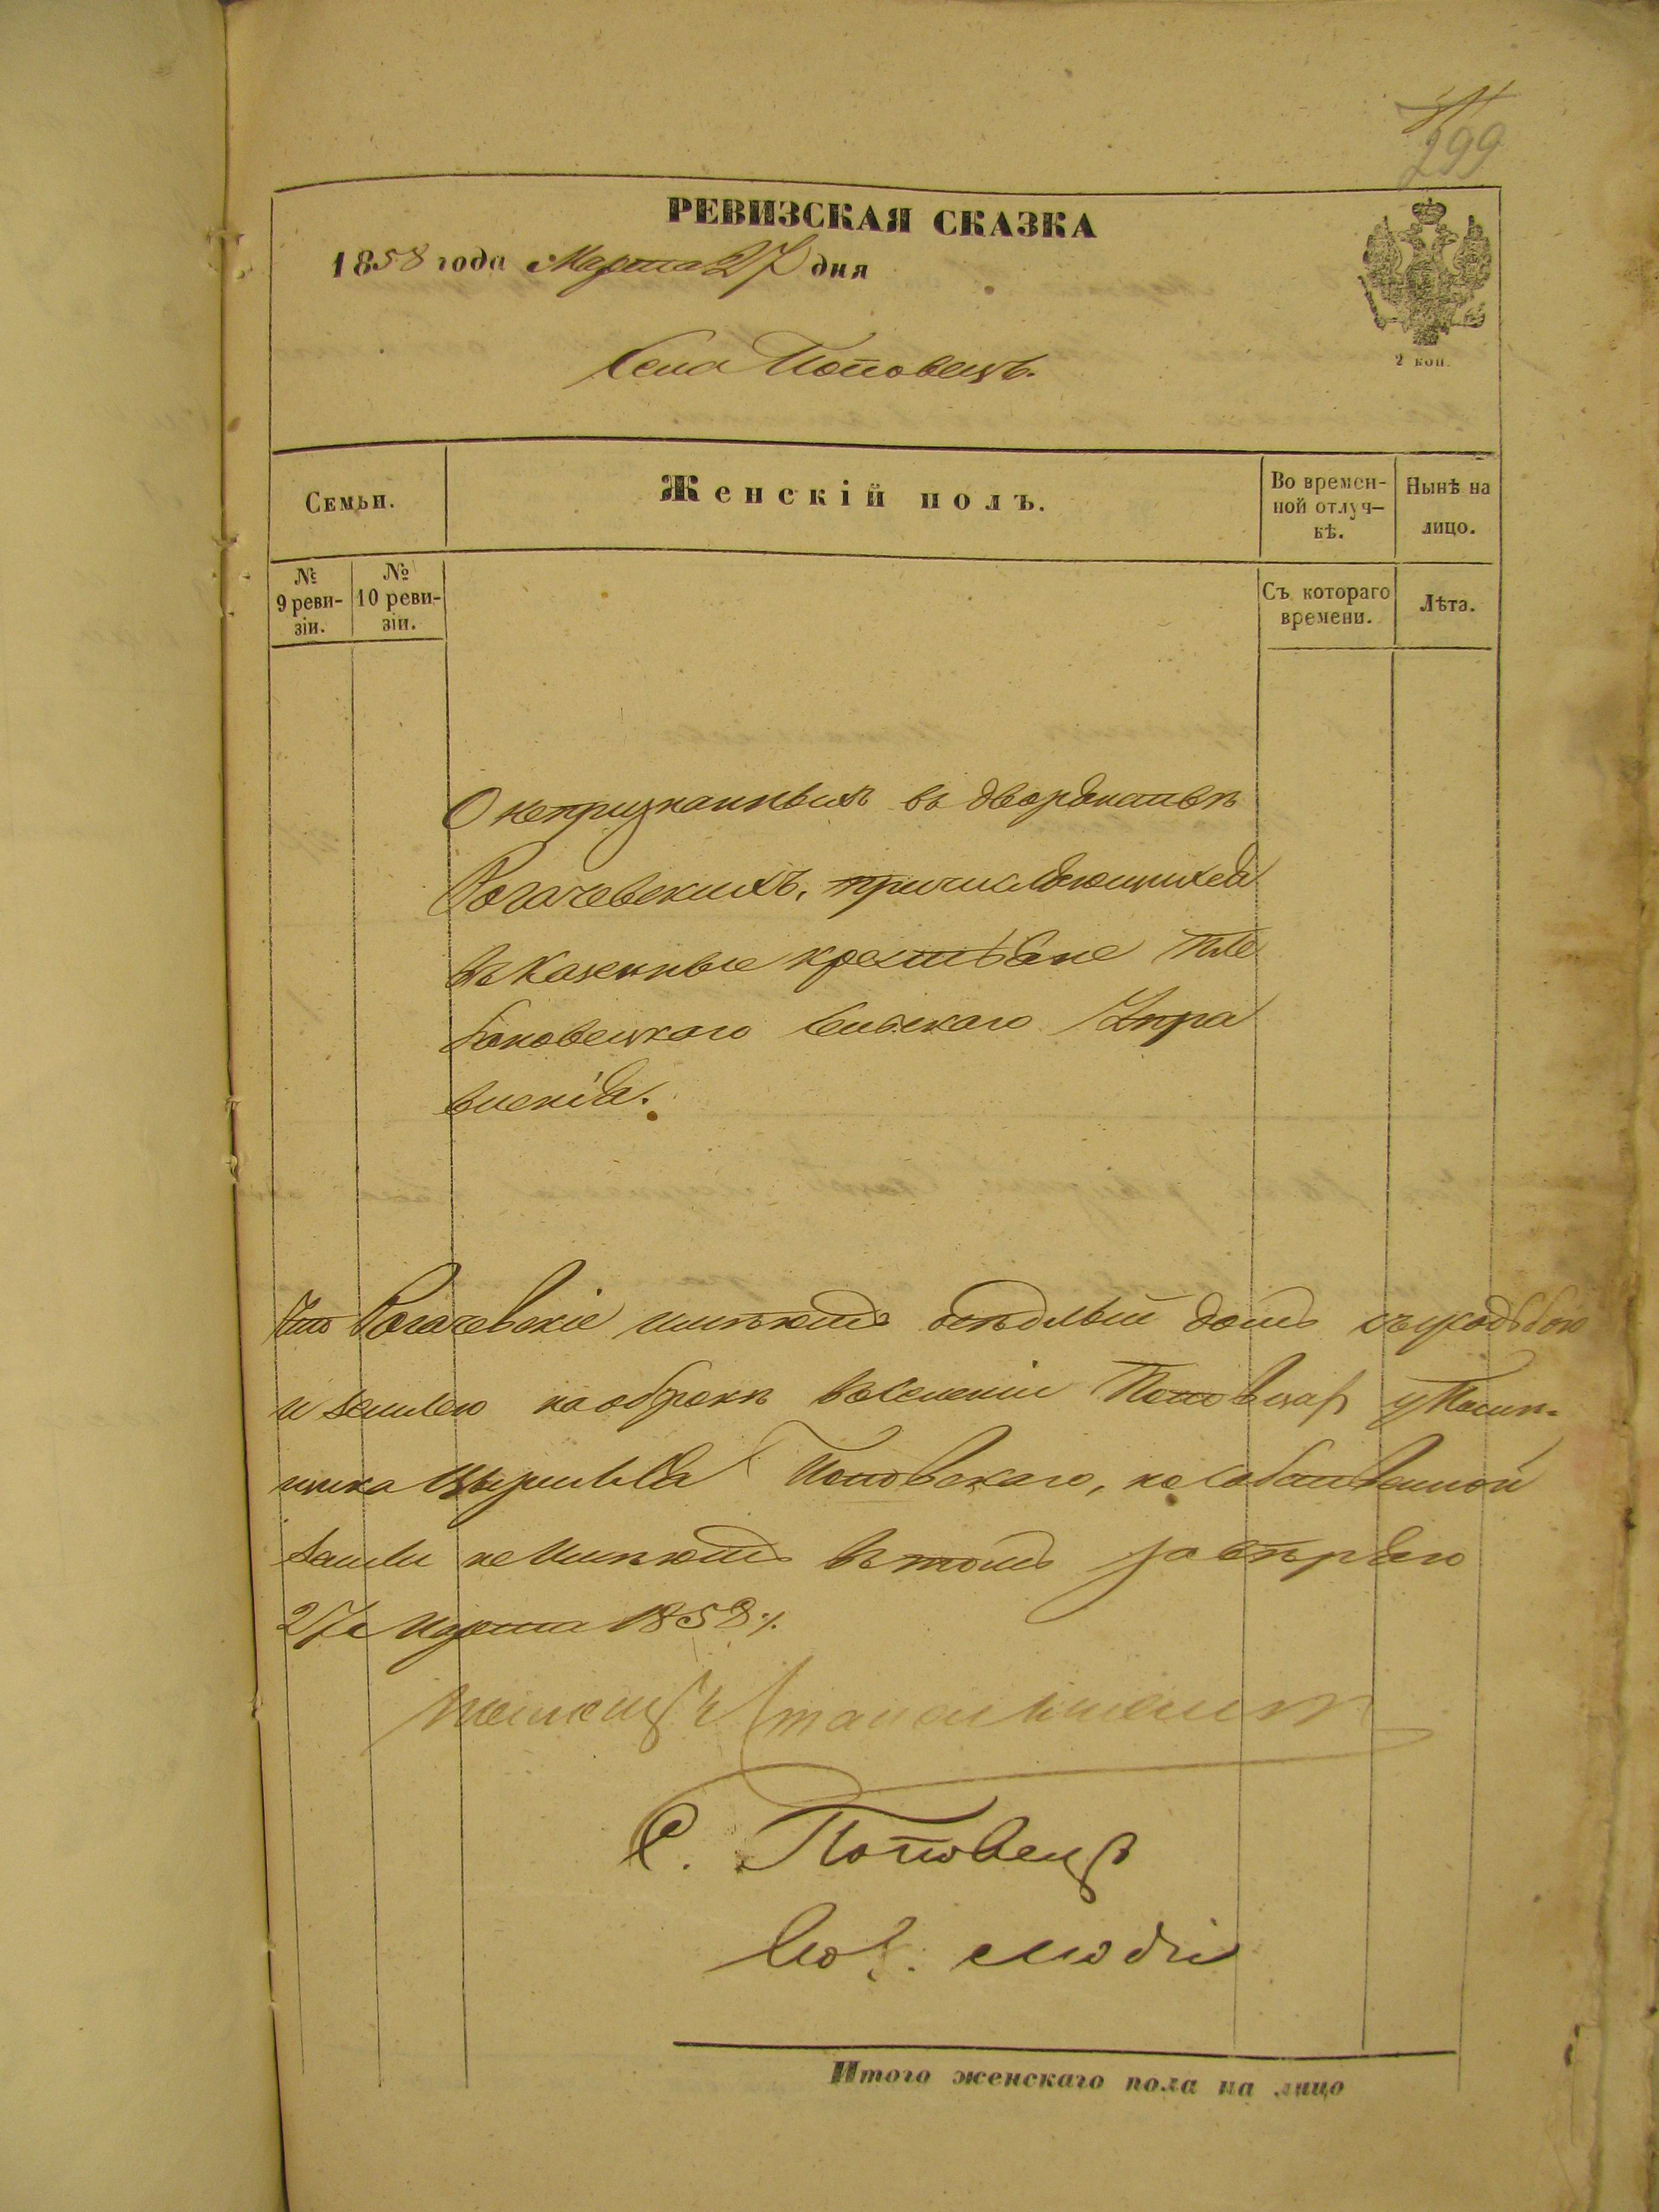 299
РЕВИЗСКАЯ СКАЗКА
1858 года Марта 27 дня
Села Поповецъ.
2 коп.
Семьи.
Женскій полъ.
Во времен-
ной отлуч-
кѣ.
Нынѣ на
лицо.
№
9 реви-
зіи.
№
10 реви-
зіи.
Съ котораго
времени.
Лѣта.
О непризнанныхъ въ дворянствѣ
Рогачевскихъ, причисляющихся
въ казенные крестьяне Пле
бановецкаго Сельскаго Упра
вленія.
Что Рогачевскіе имѣютъ осѣдлый домъ съ усадьбою
и землею на оброкѣ въ селеніи Поповцахъ у Помѣ-
щика Поповскаго, но собственной
земли не имѣютъ въ томъ завѣряю
27 Марта 1858 г.
С. Поповецъ
Итого женскаго пола на лицо